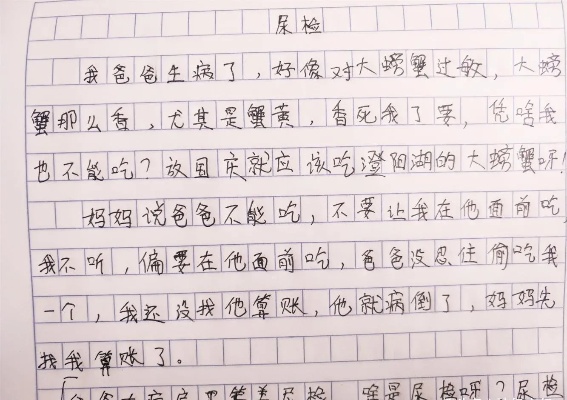 尿检
我爸爸生病了，好像对大螃蟹过敏，大螃
蟹那么香，尤其是蟹黄，香死我了要，凭啥我
也不能吃？放国庆就应该吃澄阳湖的大螃蟹呀！
妈妈说爸爸不能吃，不要让我在他面前吃，
我不听，偏要在他面前吃，爸爸没忍住偷吃我
一个，我还没找他算账，他就病倒了，妈妈先
找我算账了。
尿检，啥是尿检呀？尿检